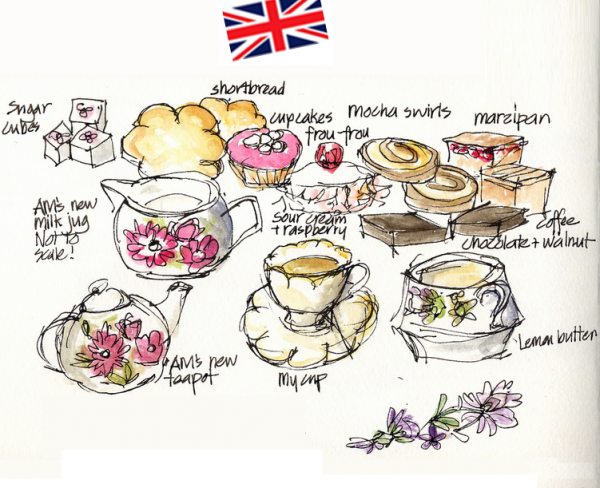 shortbread
Sugar
cubes
cupcakes
frou-frou
mocha swirls
marzipan
AM's new
milk jug
Not to
scale!
sour cream
+ raspberry
coffee
chocolate + walnut
Lemon butter
AM's new
teapot
My cup